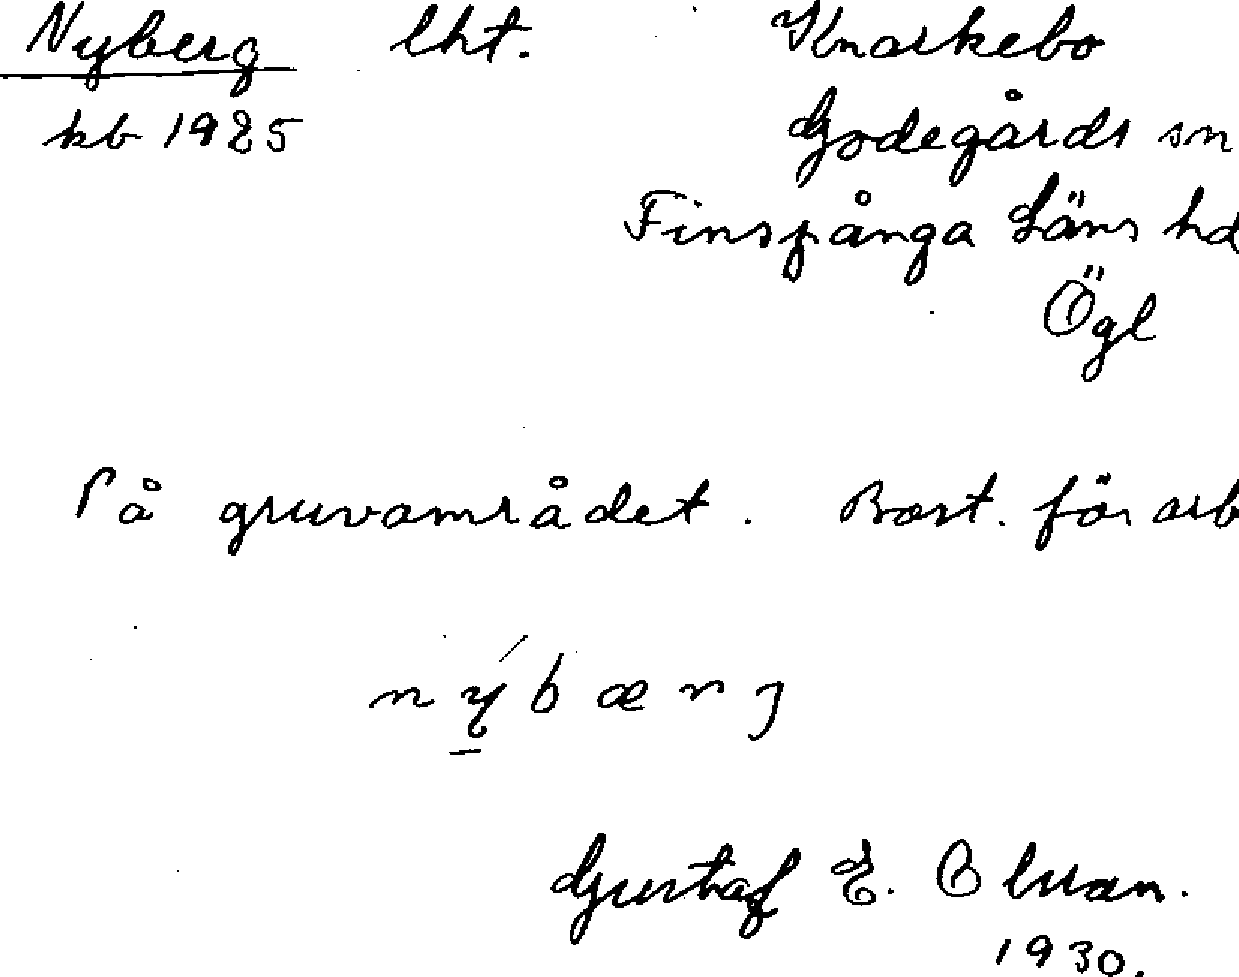 Nyberg lht. Knarkebo
kb 1925 Godegårds sn
Finspånga Läns hd
Ögl
På gruvområdet. Bost. för arb
nýbærj
Gustaf E. Olsson.
1930.